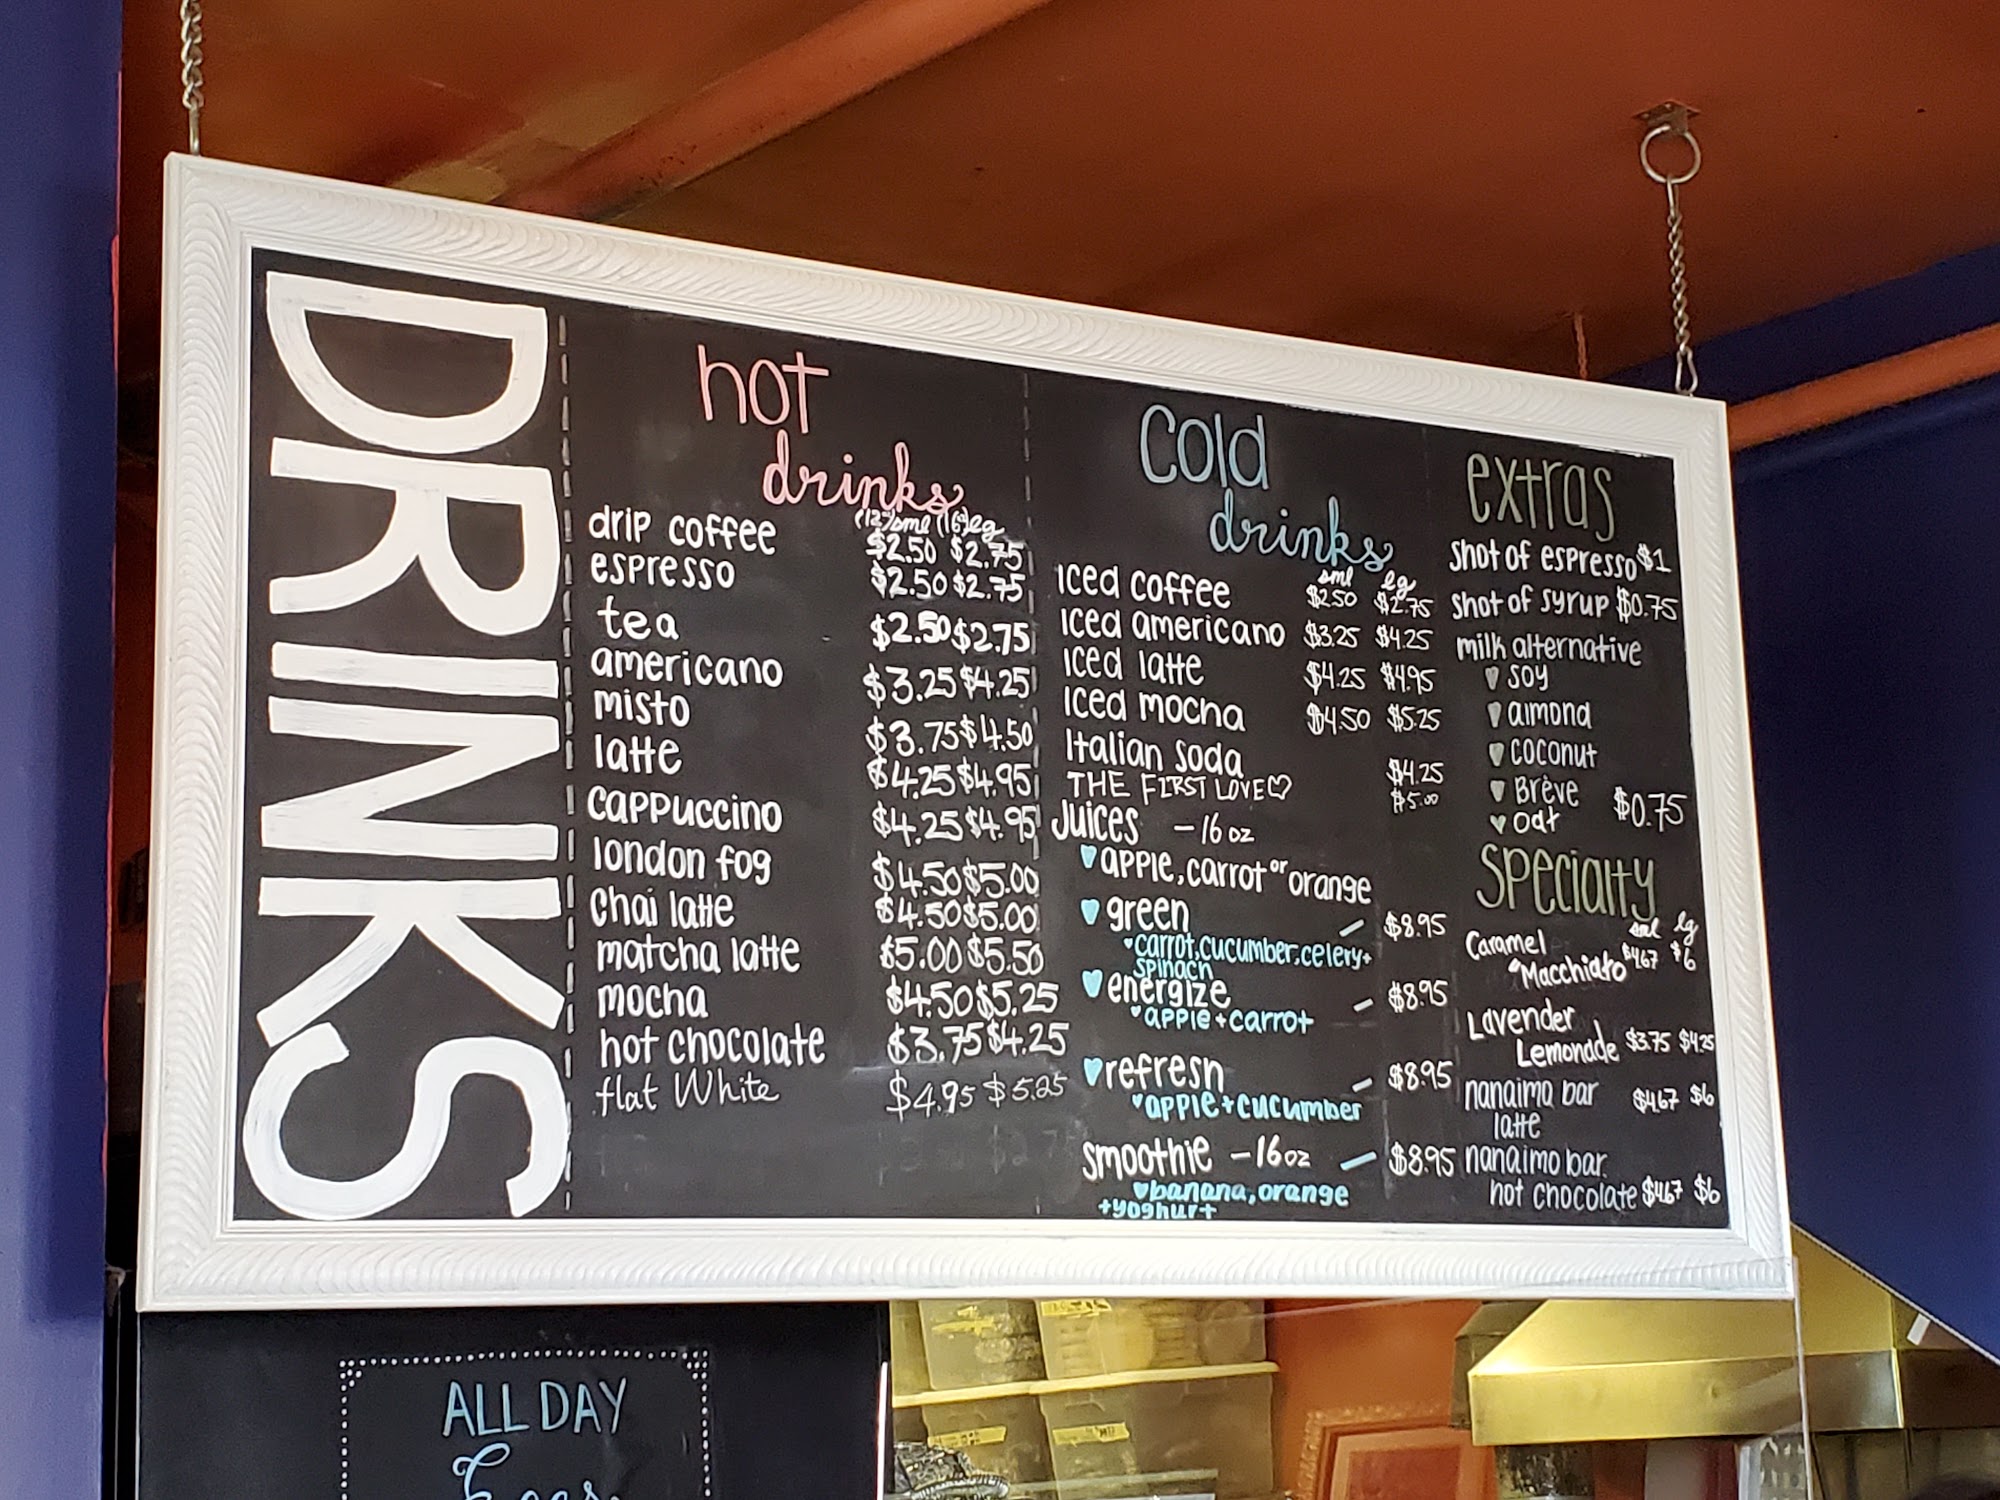 DRINKS
hot
drinks
(12oz)sml (16oz)lg
drip coffee $2.50 $2.75
espresso $2.50 $2.75
tea $2.50 $2.75
americano $3.25 $4.25
misto $3.75 $4.50
latte $4.25 $4.95
cappuccino $4.25 $4.95
london fog $4.50 $5.00
chai latte $4.50 $5.00
matcha latte $5.00 $5.50
mocha $4.50 $5.25
hot chocolate $3.75 $4.25
flat White $4.95 $5.25
cold
drinks
sml lg
Iced coffee $2.50 $2.75
Iced americano $3.25 $4.25
Iced latte $4.25 $4.95
Iced mocha $4.50 $5.25
Italian soda $4.25
THE FIRST LOVE♡ $5.00
Juices - 16 oz
♥ apple, carrot or orange
♥ green - $8.95
♥ carrot, cucumber, celery +
spinach
♥ energize - $8.95
♥ apple + carrot
♥ refresh - $8.95
♥ apple + cucumber
smoothie - 16 oz - $8.95
♥ banana, orange
+ yoghurt
extras
shot of espresso $1
shot of syrup $0.75
milk alternative
♥ soy
♥ almond
♥ coconut
♥ Brève $0.75
♥ oat
specialty
sml lg
Caramel
Macchiato $4.67 $6
Lavender
Lemonade $3.75 $4.25
nanaimo bar $4.67 $6
latte
nanaimo bar
hot chocolate $4.67 $6
ALL DAY